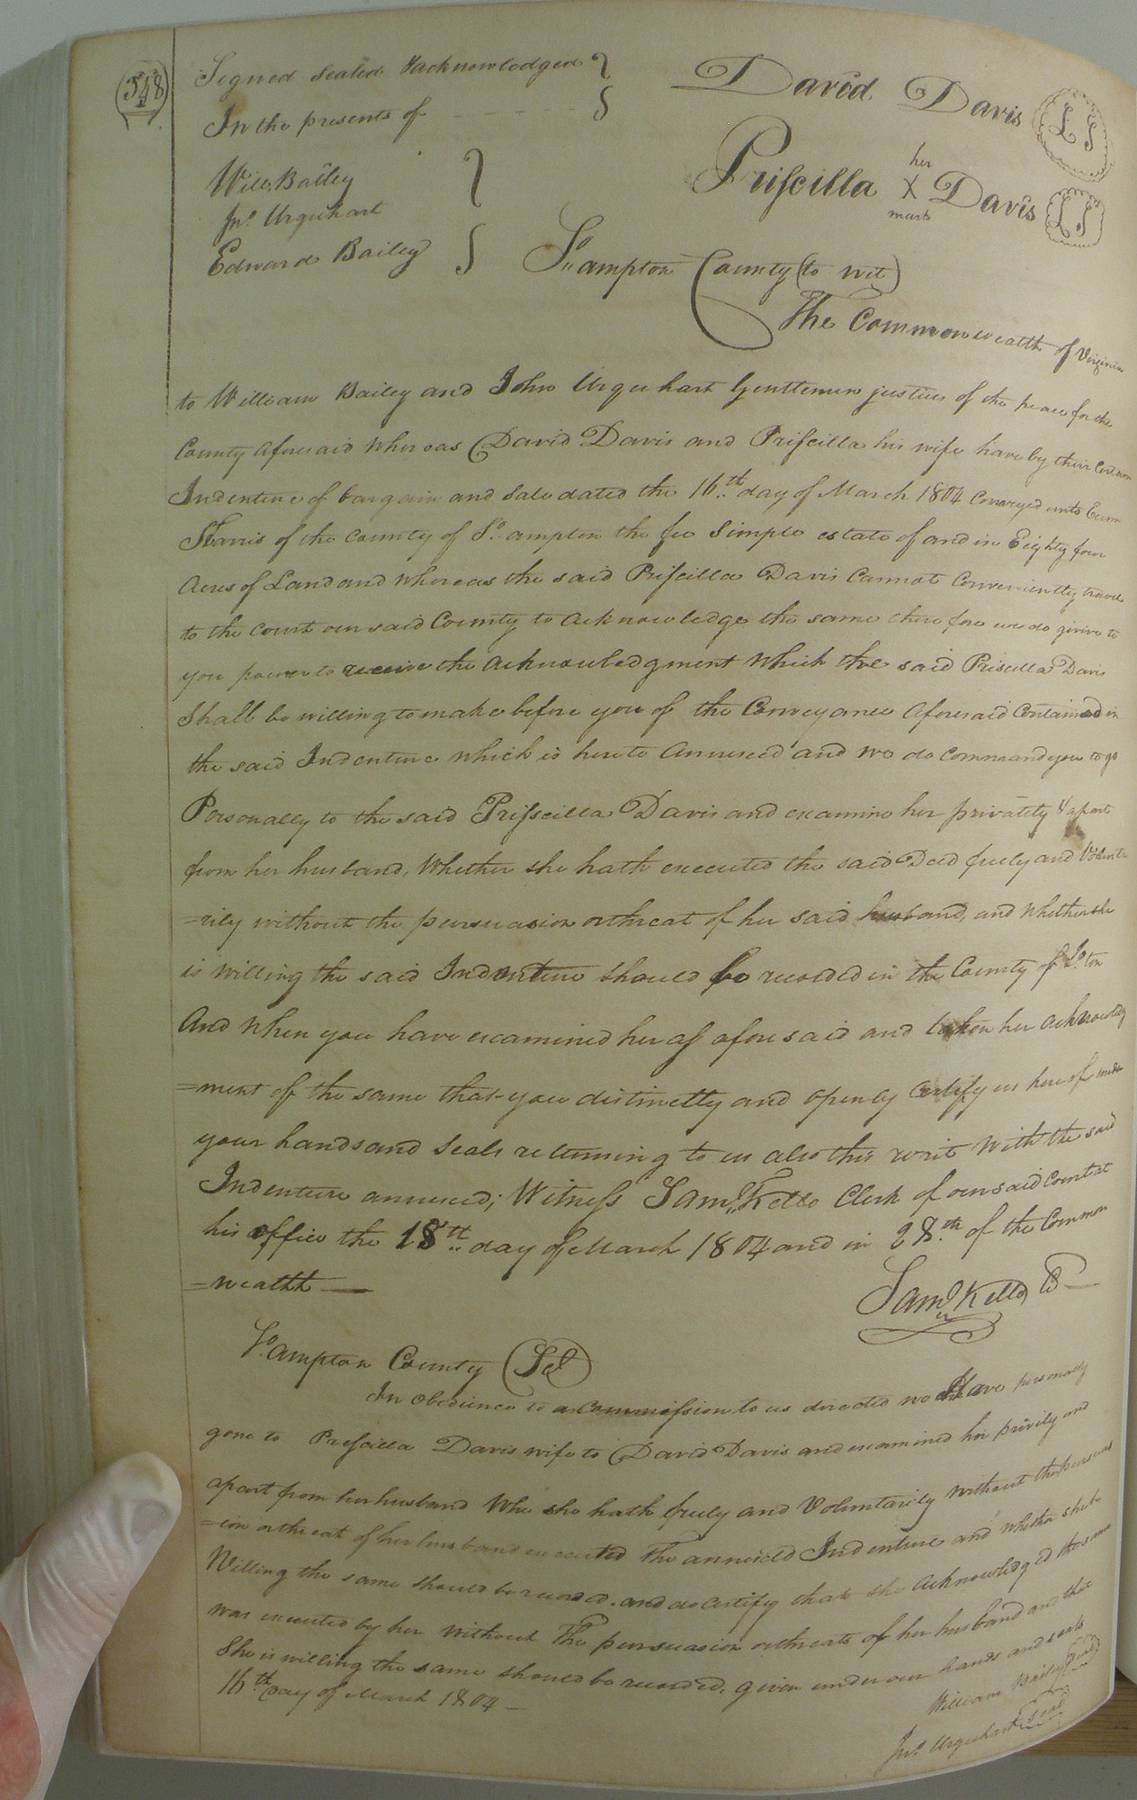 548
Signed sealed &acknowledged
In the presents of
Will Bailey
Jno. Urquhart
Edward Bailey
David Davis LS
her
Priscilla X Davis LS
mark
So.ampton County (to wit)
The Commonwealth of Virginia
to William Bailey and John Urquhart Gentlemen justices of the peace for the
County aforesaid Whereas David Davis and Priscilla his wife have by their Certain
Indenture of bargain and Sale dated the 16th day of March 1804 Conveyed unto
of the County of So.ampton the fee Simple estate of and in Eighty four
Acres of Land and Whereas the said Priscilla Davis Cannot Conveniently travel
to the Court our said County to acknowledge the same therefore we do give to
you power to receive the acknowledgment which the said Priscilla Davis
Shall be willing to make before you of the Conveyance aforesaid Contained in
the said Indenture which is hereto annexed and we do command you to go
Personally to the said Priscilla Davis and examine her privately & apart
from her husband, Whether she hath executed the said Deed freely and Volunta
=rily without the persuasion or threat of her said husband, and whether she
is willing the said Indenture should be recorded in the County of So.ton
And when you have examined her as aforesaid and taken her acknowledg
=ment of the same that you distinctly and openly Certify us hereof under
your hands and Seals returning to us also this writ with the said
Indenture annexed; Witness Saml. Kello Clerk of our said Court at
his office the 18th day of March 1804 and in 28th of the Common
=wealth
Saml. Kello
So.ampton County (Sct)
In obedience to a Commission to us directed we Have personally
gone to Priscilla Davis wife to David Davis and examined her privily and
apart from her husband Who she hath freely and Voluntarily without the persuas
=ion or threat of her husband executed The annexed Indenture and whether she be
Willing the same should be recorded. and do certify that she acknowledged the same
was executed by her without The persuasion or threats of her husband and that
She is willing the same should be recorded. given under our hands and seals
16th day of March 1804
William Bailey (seal)
Jno. Urquhart (seal)